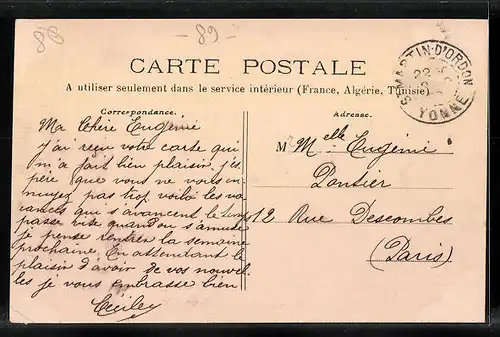 88
- 89 -
CARTE POSTALE
A utiliser seulement dans le service intérieur (France, Algérie, Tunisie)
ST MARTIN-D'ORDON
22
YONNE
Correspondance.
Adresse.
Ma Chère Eugénie
j'ai reçu votre carte qui
m'a fait bien plaisir j'es
père que vous ne vous en
nuyez pas trop voilà les va
cances qui s'avancent le temps
passe vite quand on s'amuse
je pense rentrer la semaine
prochaine En attendant le
plaisir d'avoir de vos nouvel
les je vous embrasse bien
M Melle Eugénie
Pontier
12 Rue Descombes
(Paris)